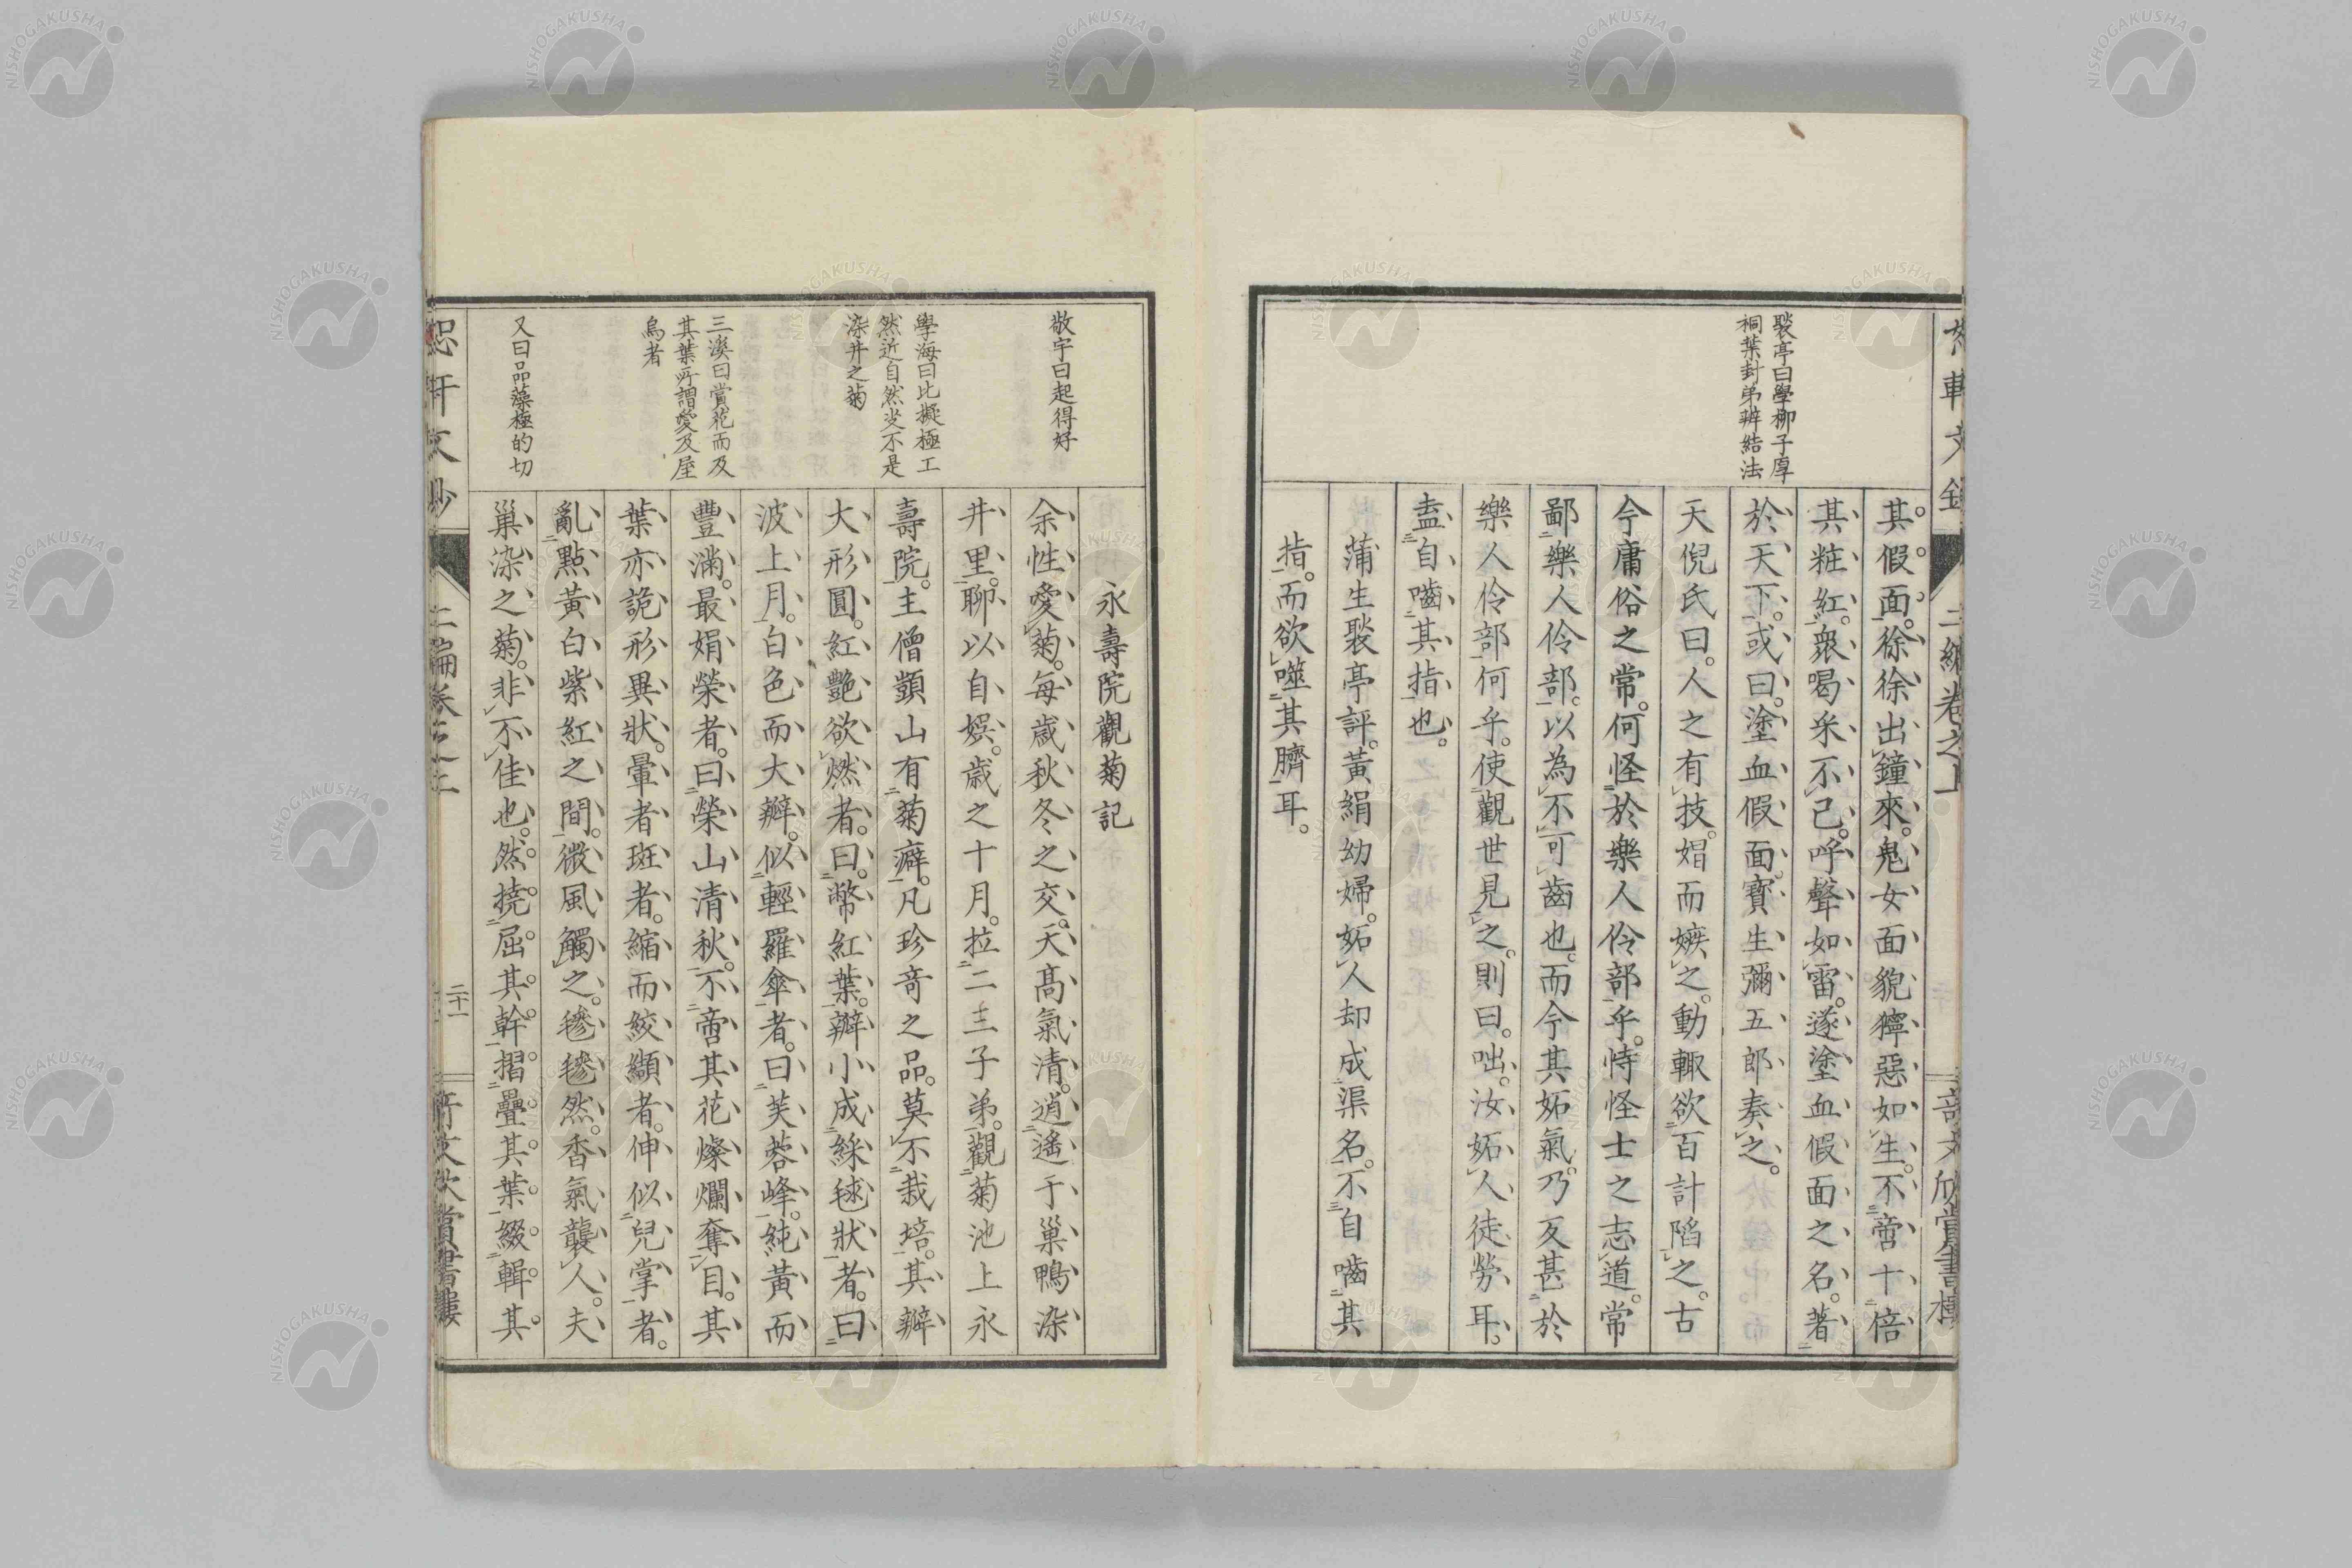 褧亭曰學栁子厚
桐葉封弟辨結法
其假面。徐徐出鐘來。鬼女面貌獰惡如生。不啻十倍
其粧紅。衆喝采不已。呼聲如雷。遂塗血假面之名。著
於天下。或曰。塗血假面。寳生彌五郎奏之。
天倪氏曰。人之有技。娼而嫉之。動輙欲百計陷之。古
今庸俗之常。何怪於樂人伶部乎。恃怪士之志道。常
鄙樂人伶部。以為不可齒也。而今其妬氣。乃反甚於
樂人伶部何乎。使觀世見之。則曰。咄。汝妬人徒勞耳。
盍自嚙其指也。
蒲生褧亭評。黃絹幼婦。妬人却成渠名。不自嚙其
指。而欲噬其臍耳。
敬宇曰起得好
學海曰比擬極工
然近自然㕝不是
染井之菊
三溪曰賞花而及
其葉所謂愛及屋
烏者
又曰品藻極的切
永壽院觀菊記
余性愛菊。每歳秋冬之交。天髙氣清。逍遙于巢鴨染
井里。聊以自娯。歳之十月。拉二三子弟。觀菊池上永
壽院。主僧顗山有菊癖。凡珍竒之品。莫不栽培。其瓣
大形圓。紅艷欲燃者。曰幣紅葉。瓣小成綵毬狀者。曰
波上月。白色而大瓣。似輕羅傘者。曰芙蓉峰。純黃而
豐滿。最娟榮者。曰榮山清秋。不啻其花燦爛奪目。其
葉亦詭形異狀。暈者斑者。縮而絞纈者。伸似兒掌者。
亂點黃白紫紅之間。微風觸之。毿毿然。香氣襲人。夫
巢染之菊。非不佳也。然撓屈其幹。摺疊其葉。綴輯其
二十一